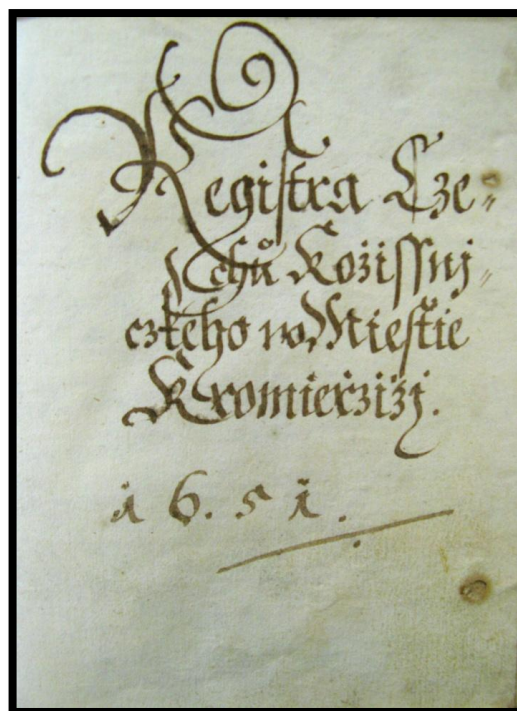 Registra Cze⸗
chů Kożissnj⸗
czkeho w Miestie
Kromierzizj.
1 6. 5 1.